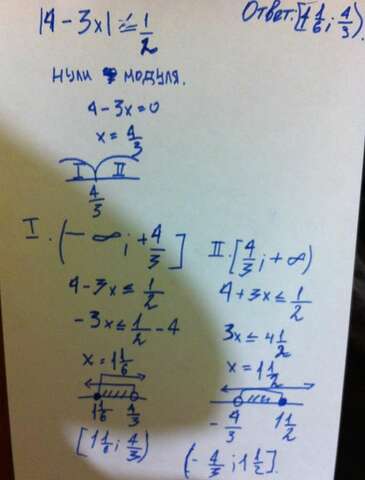 |4 - 3x| ≤ 1/2
Ответ: [1 1/6; 4/3).
нули модуля.
4 - 3x = 0
x = 4/3
I II
4/3
I. (-∞; +4/3]
4 - 3x ≤ 1/2
-3x ≤ 1/2 - 4
x = 1 1/6
1 1/6 4/3
[1 1/6; 4/3)
II. [4/3; +∞)
4 + 3x ≤ 1/2
3x ≤ 4 1/2
x = 1 1/2
-4/3 1 1/2
(-4/3; 1 1/2].